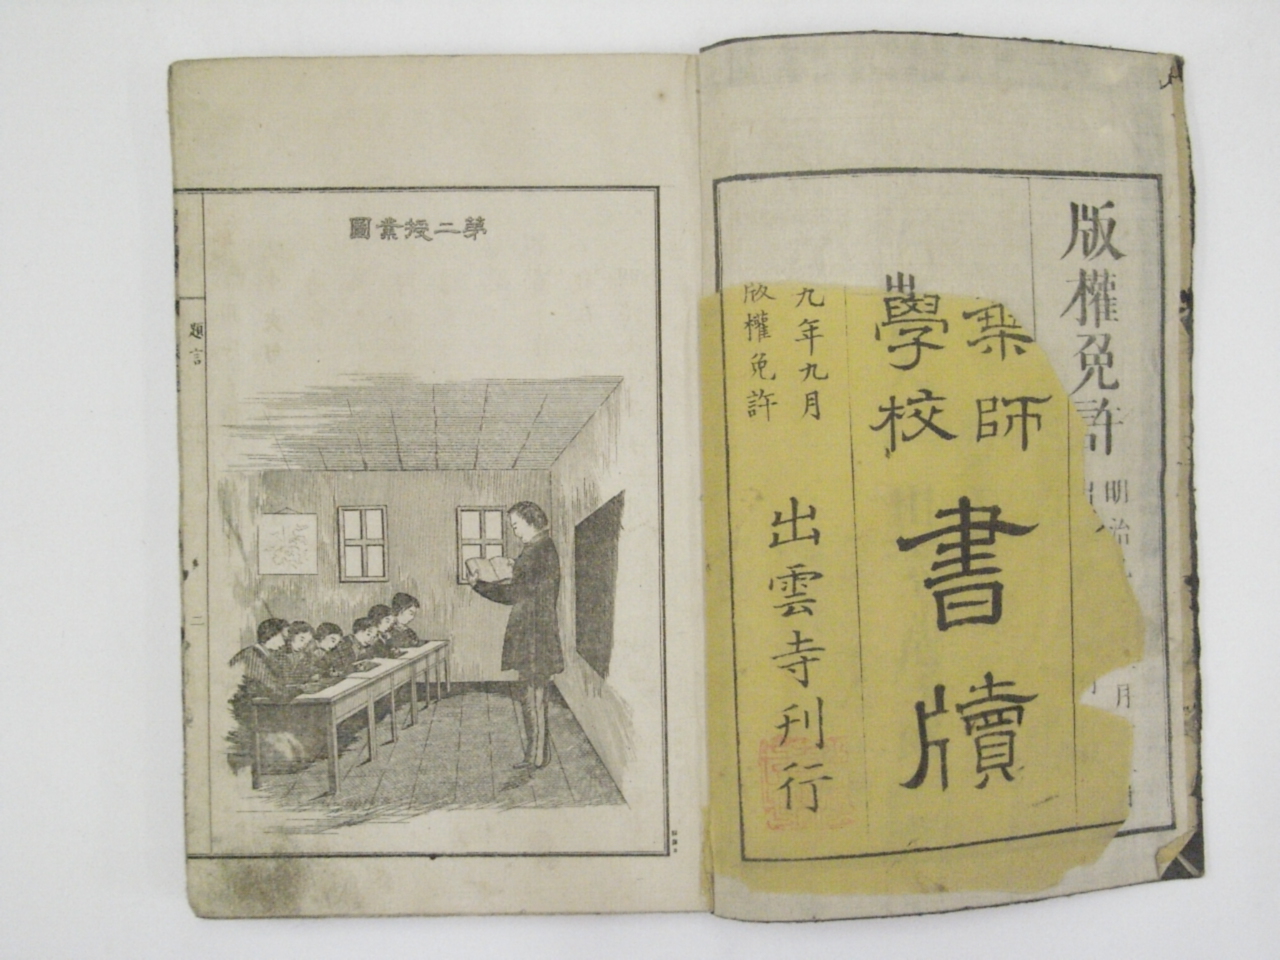 版權免許
明治
月
師
學校
書牘
九年九月
版權免許
出雲寺刊行
第二授業圖
題言
二